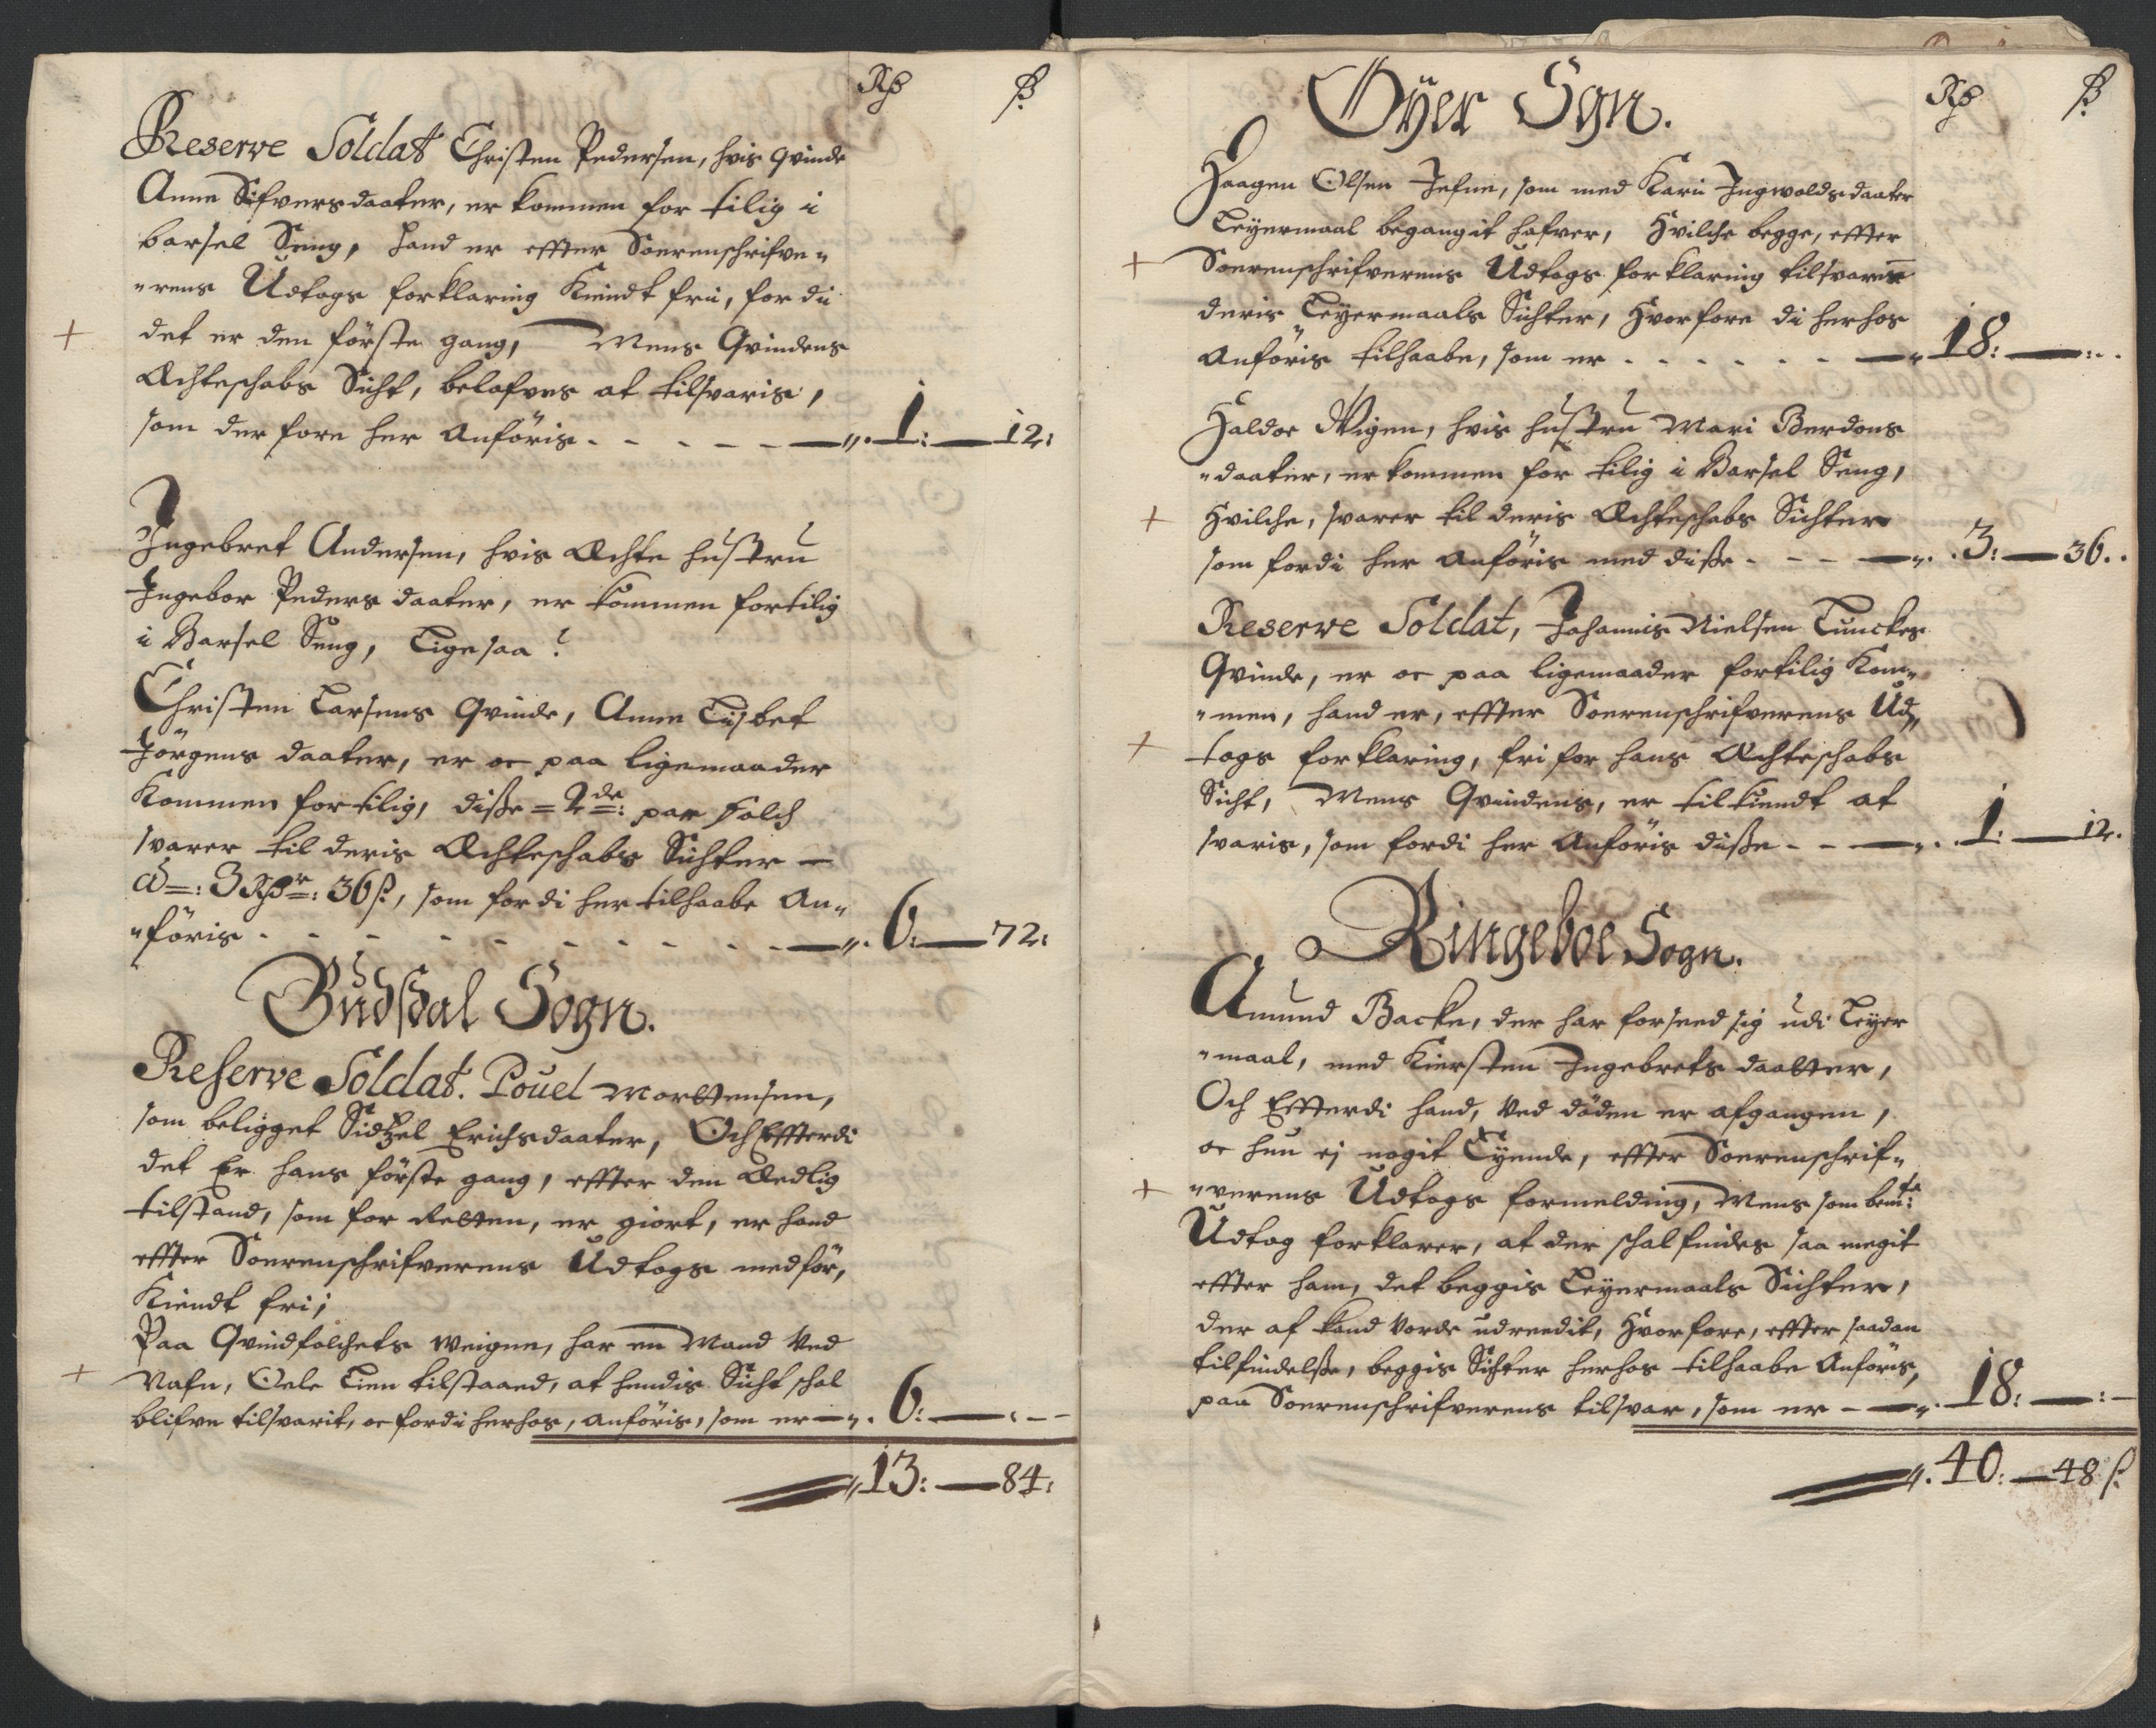 Rdr ß.
Reserve Soldat Christen Pedersen, hvis qvinde
Anne Sifversdaater, er kommen for tilig i
barsel Seng, hand er effter Soerenschrifve„
„rens Udtogs forklaring Kiendt frii, for di
det er den förste gang, Mens Qvindens
Æchteschabs Sicht, belafves at tilsvaris,
som der fore her Anföris - - - - - 1: 12:
Ingebret Andersen, hvis Æchte hustru
Ingebor Peders daater, er kommen fortilig
i Barsel Seng, Ligesaa
Christen Larsens Qvinde, Anne Lisbet
Jörgens daater, er oc paa ligemaader
Kommen fortilig, disse = 2de: par Folch
svarer til deris Æchteschabs Sichter
a: 3 Rdr: 36 ß, som fordi her tilhaabe An„
„föris - - - - - - - - - 6: 72:
Gudsdal Sogn.
Reserve Soldat. Pouel Morttensen,
som beligget Sidtzel Erichsdaater, Och Effterdi
det Er hans förste gang, effter den Ædlig
tilstand, som for Retten, er giort, er hand
effter Soerenschrifverens Udtogs medför,
Kiendt fri;
Paa Qvindfolchets weigne, har en Mand Ved
Nafn, Oele Lien tilstaaed, at hendis Sicht schal
blifve tilsvarit, oc fordi herhos, anföris, som er 6:
13: 84:
Öyer Sgn.
Rdr ß.
Haagen Olsen Jefne, som med Karii Ingwoldsdaater
Leyermaal begangit hafver, Hvilche begge, effter
Soerenschrifverens Udtogs forklaring tilsvarer
deris Leyermaals Sichter, Hvorfore di herhos
Anföris tilhaabe, som er - - - - - - 18:
Haldor Wigen, hvis hustru Mari Berdons
„daater, er kommen for tilig i Barsel Seng,
Hvilche, svarer til deris Æchteschabs Sichter
som fordi her Anföris med disse - - - 3: 36.
Reserve Soldat, Johannis Nielsen Lunckes
Qvinde, er oc paa ligemaader fortilig Kom„
„men, hand er, effter Soerenschrifverens Ud„
togs forklaring, fri for hans Æchteschabs
Sicht, Mens Qvindens, er tilkiendt at
svaris, som fordi her Anföris disse - - 1: 12.
Ringeboe Sogn.
Amund Backe, der har forseed sig udi Leyer
„maal, med Kiersten Ingebrets daatter,
Och Effterdi hand, Ved döden er afgangen,
oc hun ej nogit Eyende, effter Soerenschrif„
„verens Udtogs formelding, Mens som bemte:
Udtog forklarer, at der schal findes saa megit
effter ham, det beggis Leyermaals Sichter,
der af kand Vorde udreedit, Hvorfore, effter saadan
tilfindelsse, beggis Sichter herhos tilhaabe Anföris,
paa Soerenschrifverens tilsvar, som er - 18:
40: 48 ß.